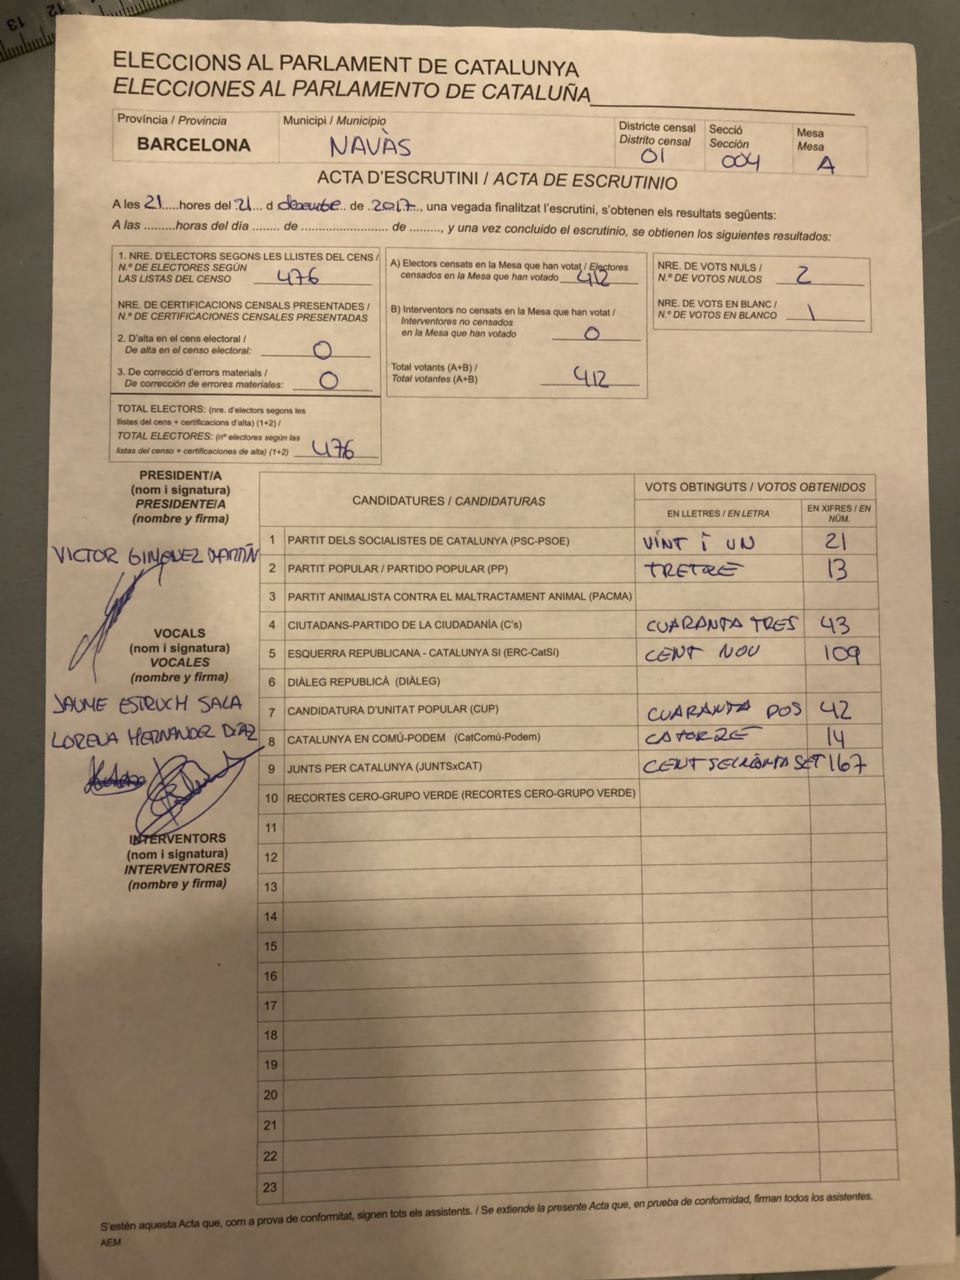 13 12
ELECCIONS AL PARLAMENT DE CATALUNYA
ELECCIONES AL PARLAMENTO DE CATALUÑA
Província / Provincia
BARCELONA
Municipi / Municipio
NAVÀS
Districte censal
Distrito censal
01
Secció
Sección
004
Mesa
Mesa
A
ACTA D'ESCRUTINI / ACTA DE ESCRUTINIO
A les 21.....hores del 21... d desembre.. de 2017, una vegada finalitzat l'escrutini, s'obtenen els resultats següents:
A las .........horas del día ........ de .......................... de ........., y una vez concluido el escrutinio, se obtienen los siguientes resultados:
1. NRE. D'ELECTORS SEGONS LES LLISTES DEL CENS /
N.º DE ELECTORES SEGÚN
LAS LISTAS DEL CENSO 476
NRE. DE CERTIFICACIONS CENSALS PRESENTADES /
N.º DE CERTIFICACIONES CENSALES PRESENTADAS
2. D'alta en el cens electoral /
De alta en el censo electoral: 0
3. De correcció d'errors materials /
De corrección de errores materiales: 0
TOTAL ELECTORS: (nre. d'electors segons les
llistes del cens + certificacions d'alta) (1+2) /
TOTAL ELECTORES: (nº electores según las
listas del censo + certificaciones de alta) (1+2) 476
A) Electors censats en la Mesa que han votat / Electores
censados en la Mesa que han votado 412
B) Interventors no censats en la Mesa que han votat /
Interventores no censados
en la Mesa que han votado 0
Total votants (A+B) /
Total votantes (A+B) 412
NRE. DE VOTS NULS /
N.º DE VOTOS NULOS 2
NRE. DE VOTS EN BLANC /
N.º DE VOTOS EN BLANCO 1
PRESIDENT/A
(nom i signatura)
PRESIDENTE/A
(nombre y firma)
VICTOR GIMENEZ MARTÍN
VOCALS
(nom i signatura)
VOCALES
(nombre y firma)
JAUME ESTRUCH SALA
LORENA HERNANDEZ DÍAZ
INTERVENTORS
(nom i signatura)
INTERVENTORES
(nombre y firma)
CANDIDATURES / CANDIDATURAS
VOTS OBTINGUTS / VOTOS OBTENIDOS
EN LLETRES / EN LETRA
EN XIFRES / EN NÚM.
1 PARTIT DELS SOCIALISTES DE CATALUNYA (PSC-PSOE) VINT I UN 21
2 PARTIT POPULAR / PARTIDO POPULAR (PP) TRETZE 13
3 PARTIT ANIMALISTA CONTRA EL MALTRACTAMENT ANIMAL (PACMA)
4 CIUTADANS-PARTIDO DE LA CIUDADANÍA (C's) CUARANTA TRES 43
5 ESQUERRA REPUBLICANA - CATALUNYA SI (ERC-CatSí) CENT NOU 109
6 DIÀLEG REPUBLICÀ (DIÀLEG)
7 CANDIDATURA D'UNITAT POPULAR (CUP) CUARANTA DOS 42
8 CATALUNYA EN COMÚ-PODEM (CatComú-Podem) CATORZE 14
9 JUNTS PER CATALUNYA (JUNTSxCAT) CENT SEIXANTA SET 167
10 RECORTES CERO-GRUPO VERDE (RECORTES CERO-GRUPO VERDE)
11
12
13
14
15
16
17
18
19
20
21
22
23
S'estén aquesta Acta que, com a prova de conformitat, signen tots els assistents. / Se extiende la presente Acta que, en prueba de conformidad, firman todos los asistentes.
AEM